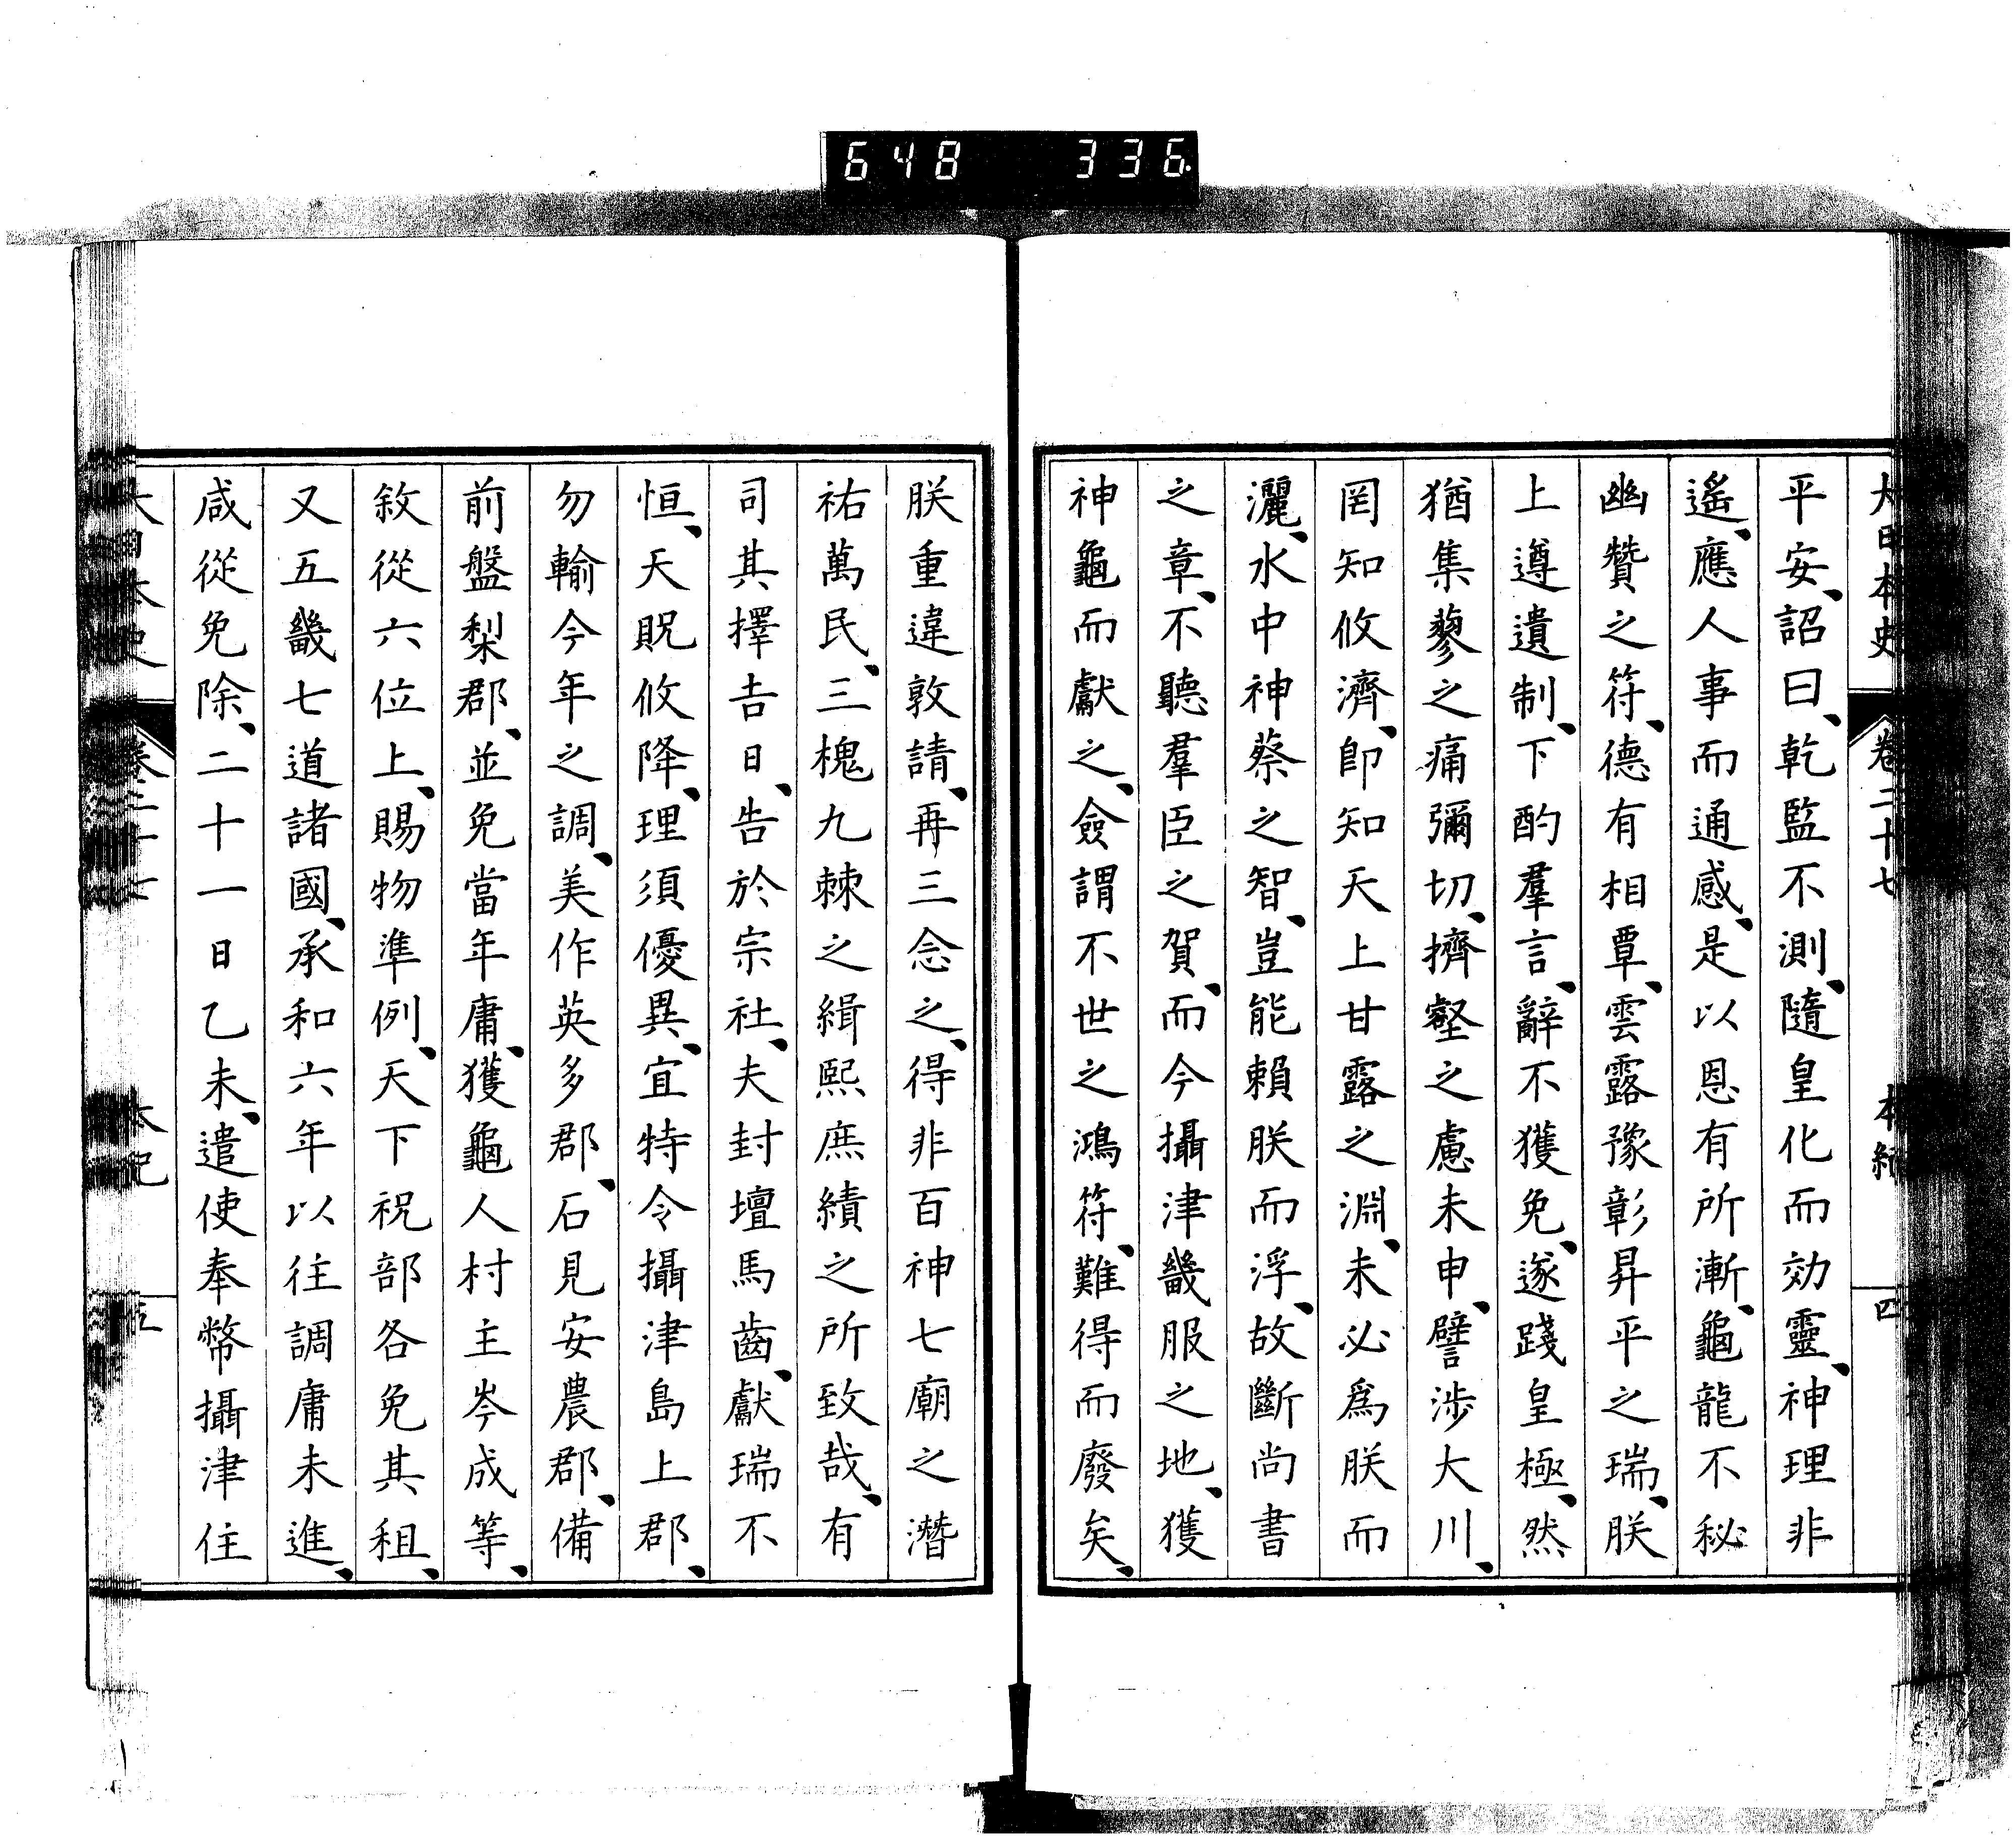 648 336
大日本史 卷二十七 本紀 四
平安、詔曰、乾監不測、隨皇化而効靈、神理非
遙、應人事而通感、是以恩有所漸、龜龍不秘
幽贊之符、德有相覃、雲露豫彰昇平之瑞、朕
上遵遺制、下酌羣言、辭不獲免、遂踐皇極、然
猶集蓼之痛彌切、擠壑之慮未申、譬涉大川、
罔知攸濟、卽知天上甘露之淵、未必爲朕而
灑、水中神蔡之智、豈能賴朕而浮、故斷尚書
之章、不聽羣臣之賀、而今攝津畿服之地、獲
神龜而獻之、僉謂不世之鴻符、難得而廢矣、
朕重違敦請、再三念之、得非百神七廟之潛
祐萬民、三槐九棘之緝熙庶績之所致哉、有
司其擇吉日、告於宗社、夫封壇馬齒、獻瑞不
恒、天貺攸降、理須優異、宜特令攝津島上郡、
勿輸今年之調、美作英多郡、石見安農郡、備
前盤梨郡、並免當年庸、獲龜人村主岑成等、
敘從六位上、賜物準例、天下祝部各免其租、
又五畿七道諸國、承和六年以往調庸未進、
咸從免除、二十一日乙未、遣使奉幣攝津住
大日本史 卷二十七 本紀 五